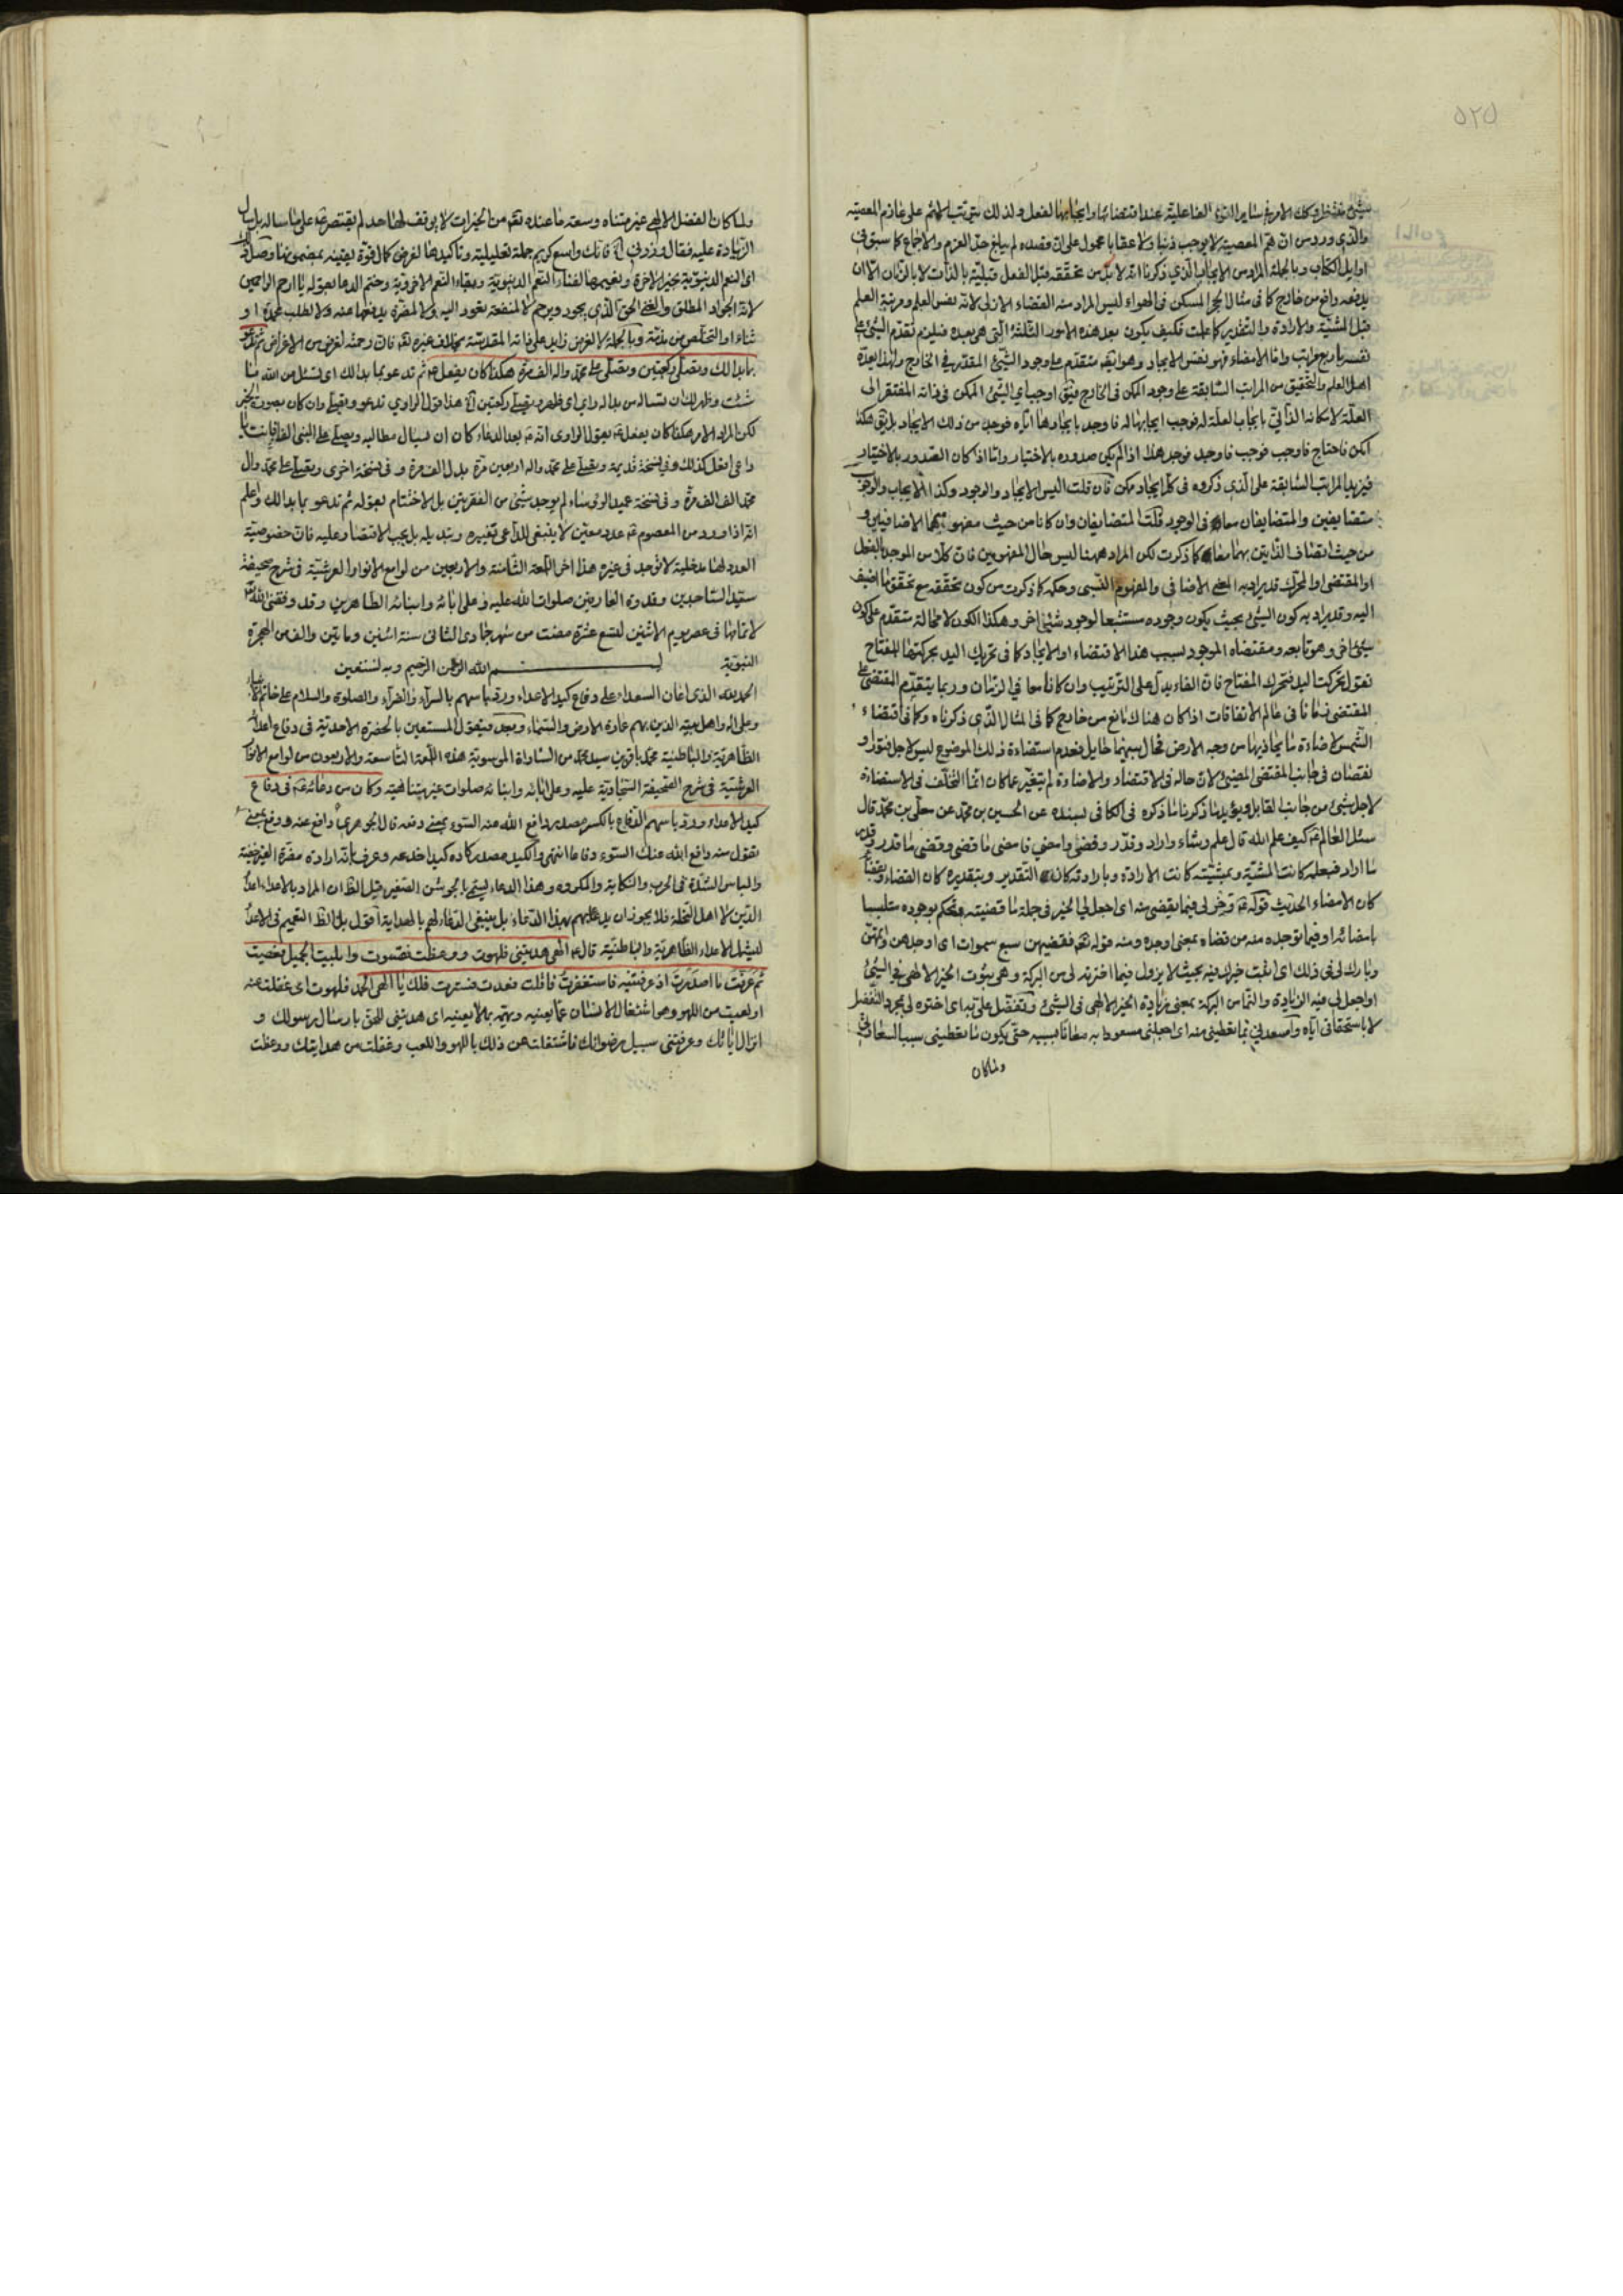 ٥٢٥
والذي ورد من ان همّ المعصية لا يوجب ذنبا ولا عقابا محمول على ان قصده لم يبلغ حدّ العزم والاجماع كما سبق في
اوايل الكتاب وبالجملة المراد من الايجاب الذي ذكرنا انه لا بدّ من تحققه قبل الفعل قبليّة بالذات لا بالزمان الّا ان
يدفعه دافع من خارج كما في مثال الحجر المسكن في الهواء ليس المراد منه القضاء الازلي لانه نفس العلم ومرتبة العلم
قبل المشيّة والارادة والتقدير كما علمت فكيف يكون بعد هذه الامور الثلثة التي هي بعده فيلزم تقدّم الشيء على
نفسه باربع مراتب وامّا الامضاء فهو نفس الايجاد وهو ايضا متقدّم على وجود الشيء المقدّر في الخارج ولهذا يعدّه
اهل العلم والتحقيق من المراتب السّابقة على وجود الممكن في الخارج فيق اوجب اي الشيء الممكن في ذاته المفتقر الى
العلّة لامكانه الذاتي بايجاب العلة له فوجب ايجابها له فاوجد بايجادها ايّاه فوجد من ذلك الايجاد بل يق هكذا
امكن فاحتاج فاوجب فوجب فاوجد فوجد هذا اذا لم يكن صدوره بالاختيار وامّا اذا كان الصدور بالاختيار
فيزيد المراتب السّابقة على الذي ذكروه في كل ايجاد ممكن فان قلت اليس الايجاد والوجود وكذا الايجاب والوجوب
متضايفين والمتضايفان معا في الوجود قلت المتضايفان وان كانا من حيث مفهومهما الاضافيين و
من حيث اتّصاف الذاتين بهما معا كما ذكرت لكن المراد ههنا ليس حال المفهومين فان كلا من الموجد بالفعل
او المقتضى او المحرّك قد يراد به المعنى الاضافي والمفهوم النسبي وحكمه كما ذكرت من كون تحققه مع تحقق ما اضيف
اليه وقد يراد به كون الشيء بحيث يكون وجوده مستتبعا لوجود شيء اخر وهكذا الكون لا محالة متقدّم على كون
شيء اخر وهو تابعه ومقتضاه الموجود بسبب هذا الاقتضاء او الايجاد كما في تحريك اليد بحركتها المفتاح
تقول تحركت اليد فتحرك المفتاح فان الفاء يدل على الترتيب وان كانا معا في الزمان وربما يتقدّم المقتضى على
المقتضى زمانا في عالم الاتفاقات اذا كان هناك مانع من خارج كما في المثال الذي ذكرناه وكما في اقتضاء
الشمس لاضاءة ما يحاذيها من وجه الارض فحال بينهما حايل فعدم استضاءة ذلك الموضوع ليس لاجل فتور او
نقصان في جانب المقتضى المضيء لان حاله في الاقتضاء والاضاءة لم يتغير عما كان انما التخلف في الاستضاءة
لاجل شيء من جانب القابل ويؤيد ما ذكرنا ما ذكره في الكافي بسنده عن الحسين بن محمد عن معلّى بن محمد قال
سئل العالم ع كيف علم الله قال علم وشاء واراد وقدّر وقضى وامضى فامضى ما قضى وقضى ما قدر وقدر
ما اراد فبعلمه كانت المشيّة وبمشيّته كانت الارادة وبارادته كان التقدير وبتقديره كان القضاء وبقضائه
كان الامضاء الحديث قوله ع وخر لي فيما تقضي منه اي اجعل لي الخير في جملة ما قضيته وتحكم بوجوده متلبسا
بامضائه او فيما توجده منه من قضاه بمعنى اوجده ومنه قوله تع فقضيهن سبع سموات اي اوجدهن واتمهن
وبارك لي في ذلك اي اثبت خيرك فيه بحيث لا يزول فيما اخترته لي من البركة وهي ثبوت الخير الالهي في الشيء
او اجعل لي فيه الزيادة والنماء من البركة بمعنى زيادة الخير الالهي في الشيء وتفضّل علي به اي اختره لي بمجرد التفضل
لا باستحقاقي اياه واسعدني بما تعطيني منه اي اجعلني مسعودا به معانا بسببه حتى يكون ما تعطيني سبب السعادتي
ولما كان
ولما كان الفضل الالهي غير متناه وسعة ما عنده تع من الخيرات لا يوقف لها حد لم يقتصر ع على ما ساله بل سال
الزيادة عليه فقال وزدني فانك واسع كريم جملة تعليلية وتاكيدها لغرض كمال قوة يقينه بمضمونها وصل ذلك
اي النعم الدنيوية بخير الاخرة ونعيمها لفناء النعم الدنيوية وبقاء النعم الاخروية وختم الدعاء بقوله يا ارحم الراحمين
لانه الجواد المطلق والغني الحق الذي يجود ويرحم لا لمنفعة تعود اليه ولا لمضرة يدفعها عنه ولا لطلب محمدة او
ثناء او التخلص من مذمّة وبالجملة لا لغرض زايد على ذاته المقدسة بخلاف غيره تع فان رحمته لغرض من الاغراض ثم تدعو
بما بدا لك وتصلي ركعتين وتصلي على محمد واله الف مرة هكذا كان يفعل ع ثم تدعو بما بدا لك اي تسئل من الله ما
شئت وظهر لك ان تساله من بدا له راي اي ظهر وتصلي ركعتين هذا قول الراوي تدعو وتصلي وان كان بصورة الخبر
لكن المراد الامر هكذا كان يفعل ع يقول الراوي انه ع بعد الدعاء كان ان يسال مطالبه ويصلي على النبي الفا فانت يا
داعي افعل كذلك وفي نسخة قديمة ويصلي على محمد واله اربعين مرة بدل الف مرة وفي نسخة اخرى ويصلي على محمد وال
محمد الف الف مرة وفي نسخة عميد الرؤساء لم يوجد شيء من الفقرتين بل الاختتام بقوله ثم تدعو بما بدا لك واعلم
انه اذا ورد من المعصوم ع عدد معيّن لا ينبغي للداعي تغييره وتبديله بل يجب الاقتصار عليه فان خصوصية
العدد لها مدخلية لا توجد في غيره هذا اخر اللمعة الثامنة والاربعين من لوامع الانوار العرشية في شرح صحيفة
سيد الساجدين وقدوة العارفين صلوات الله عليه وعلى ابائه وابنائه الطاهرين وقد وفقني الله تع
لاتمامها في عصر يوم الاثنين لتسع عشرة مضت من شهر جمادى الثاني سنة اثنين ومأتين والف من الهجرة
النبوية بسم الله الرحمن الرحيم وبه نستعين
الحمد لله الذي اعان السعداء على دفاع كيد الاعداء ورد باسهم بالسراء والضراء والصلوة والسلام على خاتم الانبياء
وعلى اله واهل بيته الذين بهم عمارة الارض والسماء وبعد فيقول المستعين بالحضرة الاحدية في دفاع اعدائه
الظاهرية والباطنية محمد باقر بن سيد محمد من السادات الموسوية هذه اللمعة التاسعة والاربعون من لوامع الانوار
العرشية في شرح الصحيفة السجادية عليه وعلى ابائه وابنائه صلوات غير متناهية وكان من دعائه ع في دفاع
كيد الاعداء ورد باسهم الدفاع بالكسر مصدر دافع الله عنه السوء بمعنى دفعه قال الجوهري دافع عنه ودفع بمعنى
تقول منه دافع الله عنك السوء دفاعا انتهى والكيد مصدر كاده كيدا خدعه وعرف بانه ارادة مضرة الغير خفية
والباس الشدة في الحرب والنكاية والمكروه وهذا الدعاء يسمى بالجوشن الصغير قيل الظ ان المراد بالاعداء اعداء
الدين لا اهل النحلة فلا يجوز ان يدعا عليهم بهذا الدعاء بل ينبغي الدعاء لهم بالهداية اقول بل الظ التعميم في الاعداء
ليشمل الاعداء الظاهرية والباطنية قال ع الهي هديتني فلهوت ووعظت فقسوت وابليت الجميل فعصيت
ثم عرفت ما اصدرت اذ عرفتنيه فاستغفرت فاقلت فعدت فسترت فلك يا الهي الحمد فلهوت اي غفلت عنه
او لعبت من اللهو وهو اشتغال الانسان عما يعنيه ويهمّه بما لا يعنيه اي هديتني للحق بارسال رسولك و
انزال اياتك وعرفتني سبيل مرضواتك فاشتغلت عن ذلك باللهو واللعب وغفلت من هدايتك ووعظت